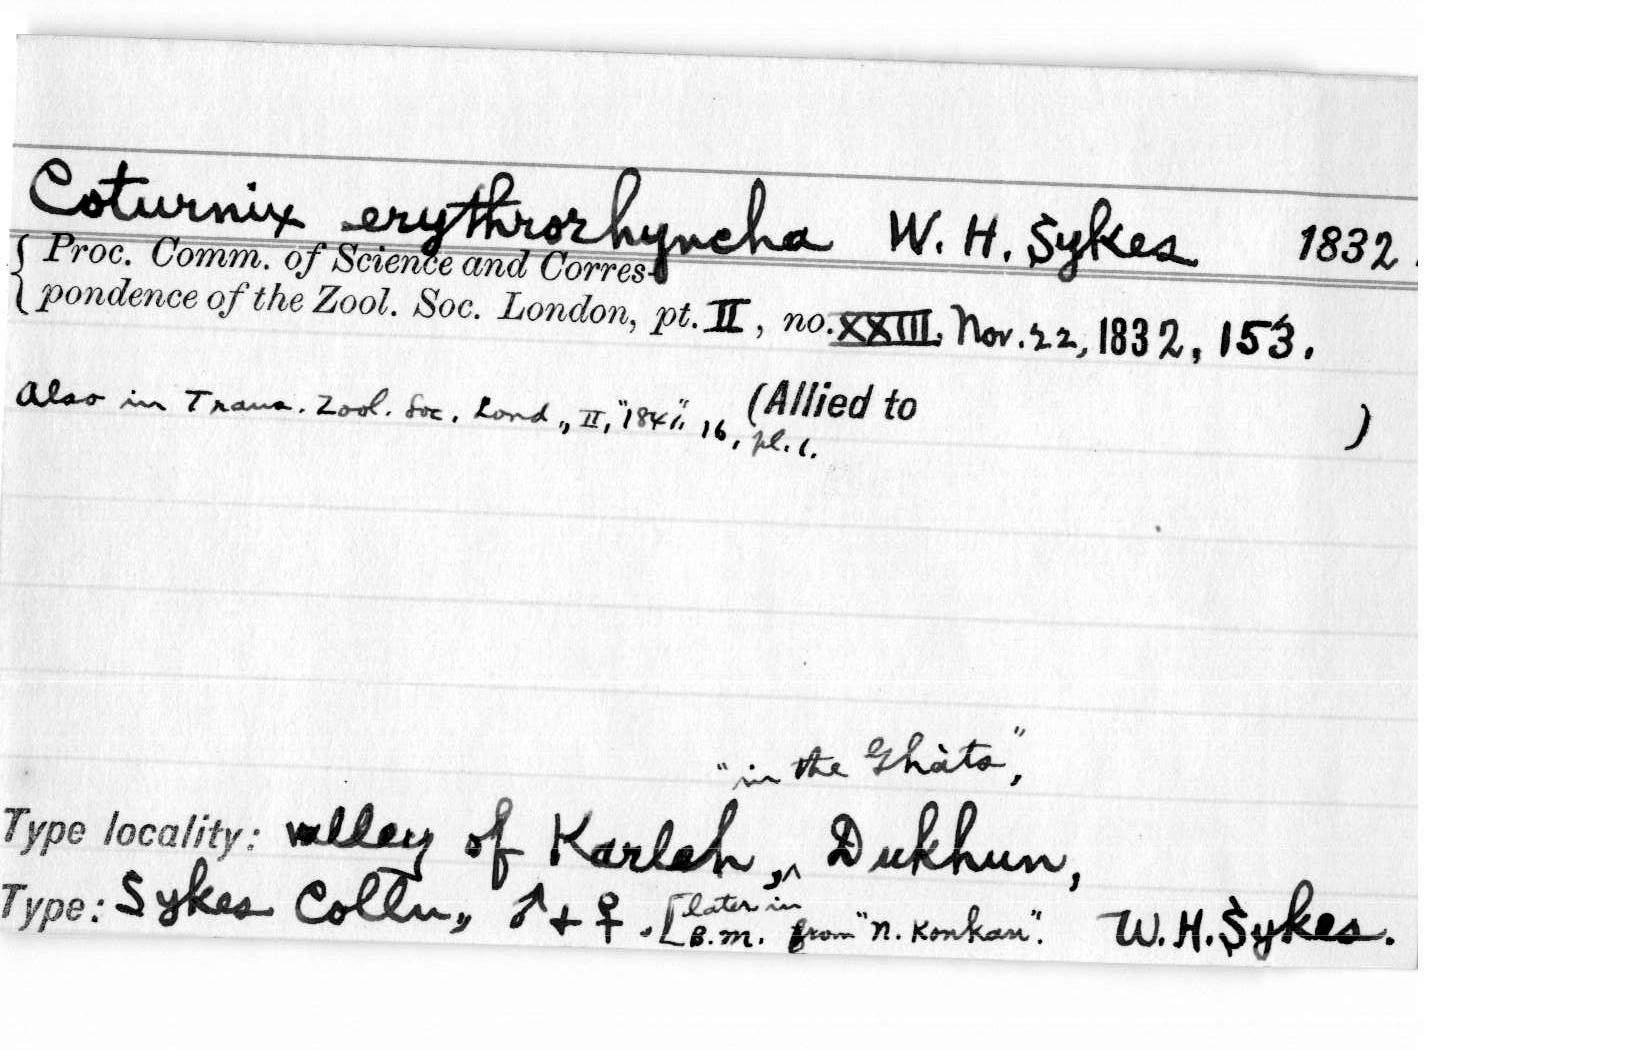 Coturnix erythrorhyncha W. H. Sykes 1832.
Proc. Comm. of Science and Corres-
pondence of the Zool. Soc. London, pt. II, no. XXIII, Nov. 22, 1832, 153.
Also in Trans. Zool. Soc. Lond., II, "1841", 16, pl. 1.
(Allied to )
"in the Ghàts",
Type locality: valley of Karleh, ^ Dukhun,
Type: Sykes Colln., ♂ + ♀. [later in B.M. from "N. Konkan". W. H. Sykes.